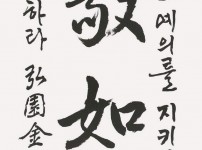 예의를 지키
敬如
하라 弘園金